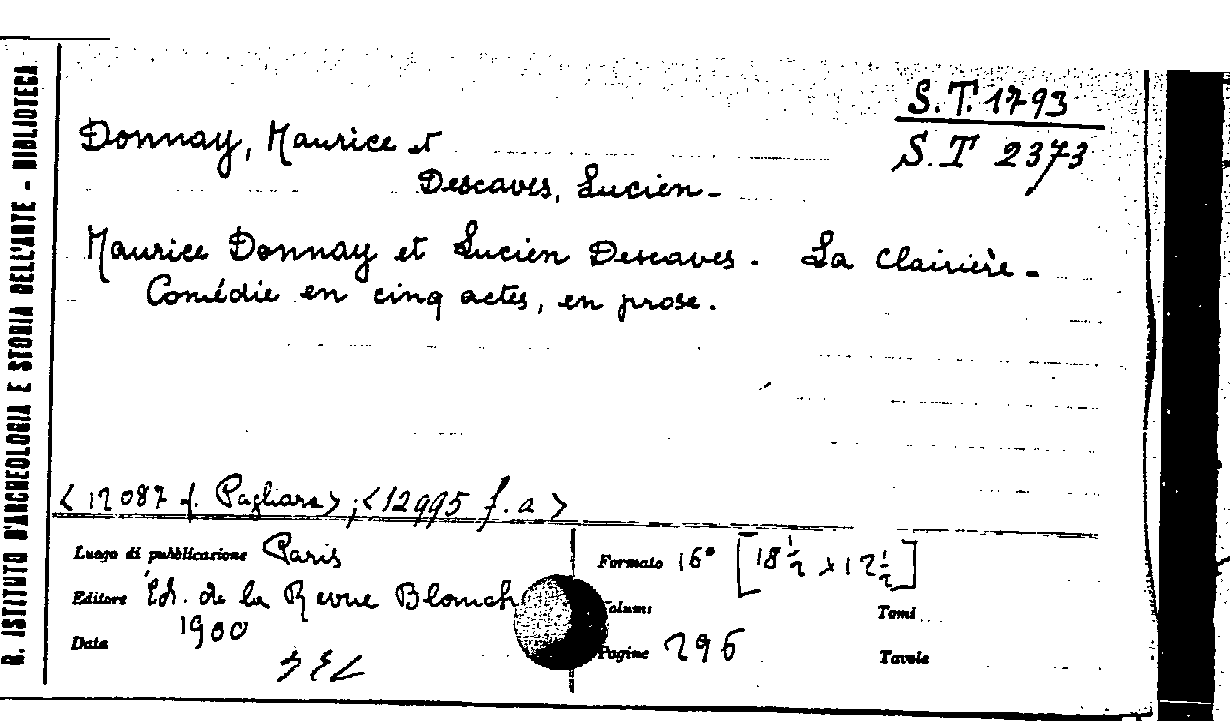 R. ISTITUTO D'ARCHEOLOGIA E STORIA DELL'ARTE - BIBLIOTECA
S.T. 1793
S.T 2373
Donnay, Maurice et
Descaves, Lucien -
Maurice Donnay et Lucien Descaves. La Clairière -
Comédie en cinq actes, en prose.
<12087 f. Pagliara>; <12995 f.a>
Luogo di pubblicazione Paris
Formato 16° [18 1/2 x 12 1/2]
Editore Ed. de la Revue Blanch
Volumi
Tomi
Data 1900
Pagine 296
Tavole